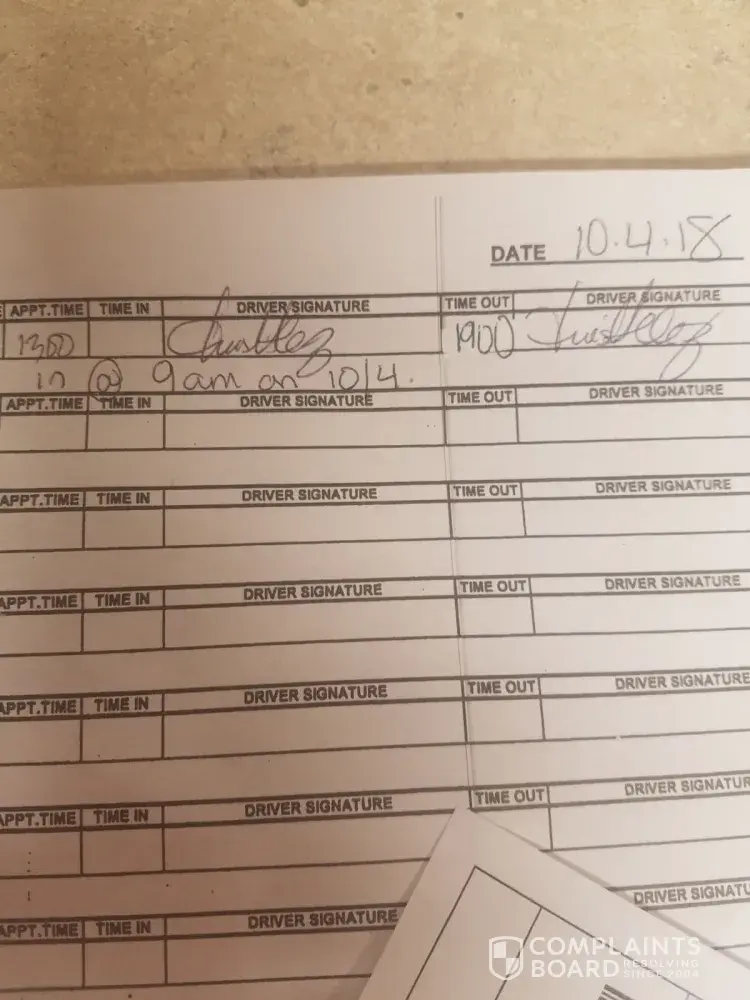 DATE 10.4.18
APPT.TIME TIME IN DRIVER SIGNATURE TIME OUT DRIVER SIGNATURE
1300 1900
in @ 9am on 10/4.
APPT.TIME TIME IN DRIVER SIGNATURE TIME OUT DRIVER SIGNATURE
APPT.TIME TIME IN DRIVER SIGNATURE TIME OUT DRIVER SIGNATURE
APPT.TIME TIME IN DRIVER SIGNATURE TIME OUT DRIVER SIGNATURE
APPT.TIME TIME IN DRIVER SIGNATURE TIME OUT DRIVER SIGNATURE
APPT.TIME TIME IN DRIVER SIGNATURE TIME OUT DRIVER SIGNATUR
APPT.TIME TIME IN DRIVER SIGNATURE DRIVER SIGNATU
COMPLAINTS
BOARD RESOLVING SINCE 2004